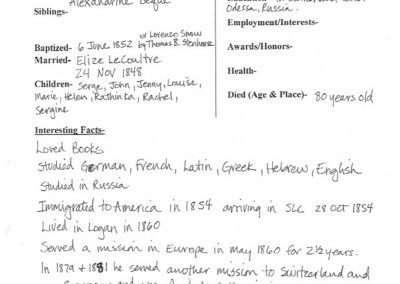 Alexandrine Beguè
Siblings-
Odessa, Russia.
Employment/Interests-
or Lorenzo Snow
Baptized- 6 June 1852 by Thomas B. Stenhouse
Awards/Honors-
Married- Elize LeCoultre
24 NOV 1848
Health-
Children- Serge, John, Jenny, Louise,
Marie, Helen, Kathinka, Rachel,
Sergine
Died (Age & Place)- 80 years old
Interesting Facts-
Loved Books
Studied German, French, Latin, Greek, Hebrew, English
Studied in Russia
Immigrated to America in 1854 arriving in SLC 28 OCT 1854
Lived in Logan in 1860
Served a mission in Europe in May 1860 for 2½ years.
In 1879 + 1881 he served another mission to Switzerland and